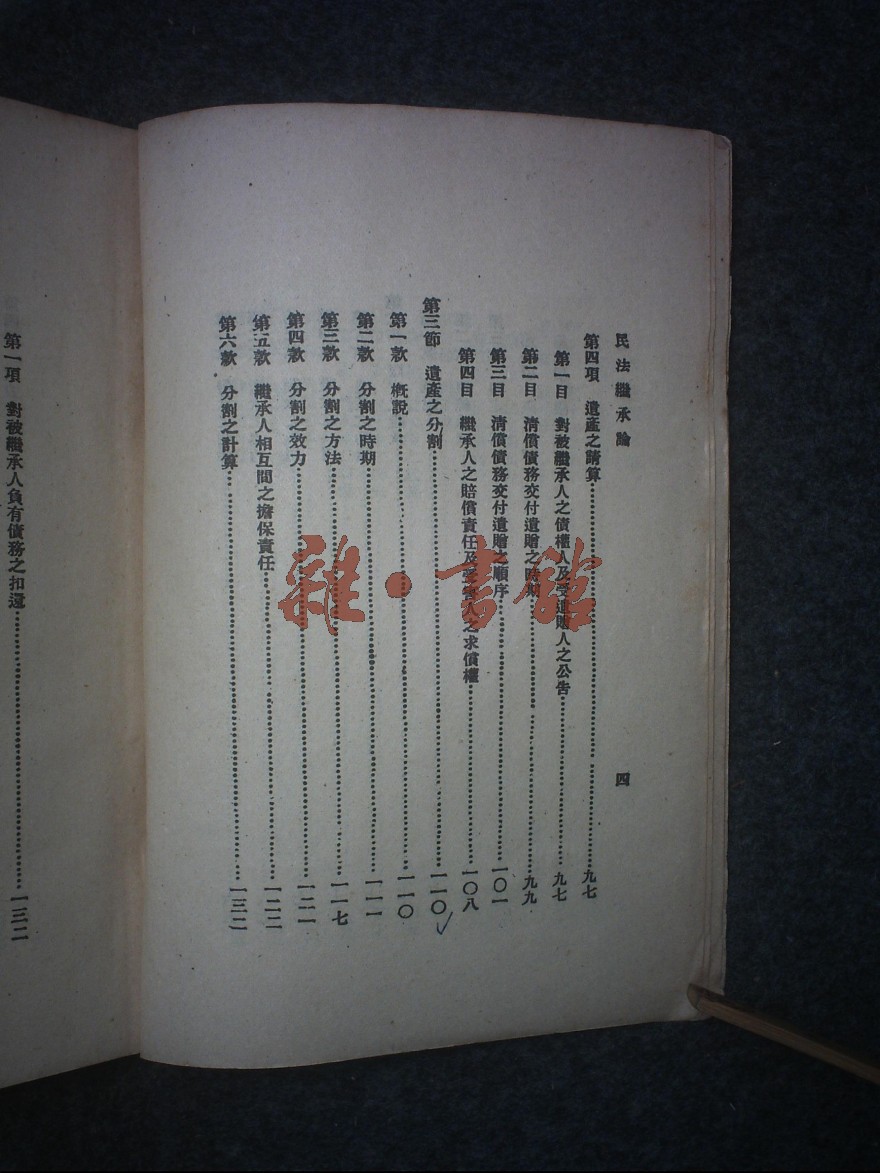 民法繼承論
四
第四項　遺產之請算……九七
第一目　對被繼承人之債權人及受遺贈人之公告……九七
第二目　清償債務交付遺贈之時期……九九
第三目　清償債務交付遺贈之順序……一〇一
第四目　繼承人之賠償責任及受害人之求償權……一〇八
第三節　遺產之分割……一一〇
第一款　槪說……一一〇
第二款　分割之時期……一一一
第三款　分割之方法……一一七
第四款　分割之效力……一二一
第五款　繼承人相互間之擔保責任……一二二
第六款　分割之計算……一三二
第一項　對被繼承人負有債務之扣還……一三二
雜·書館